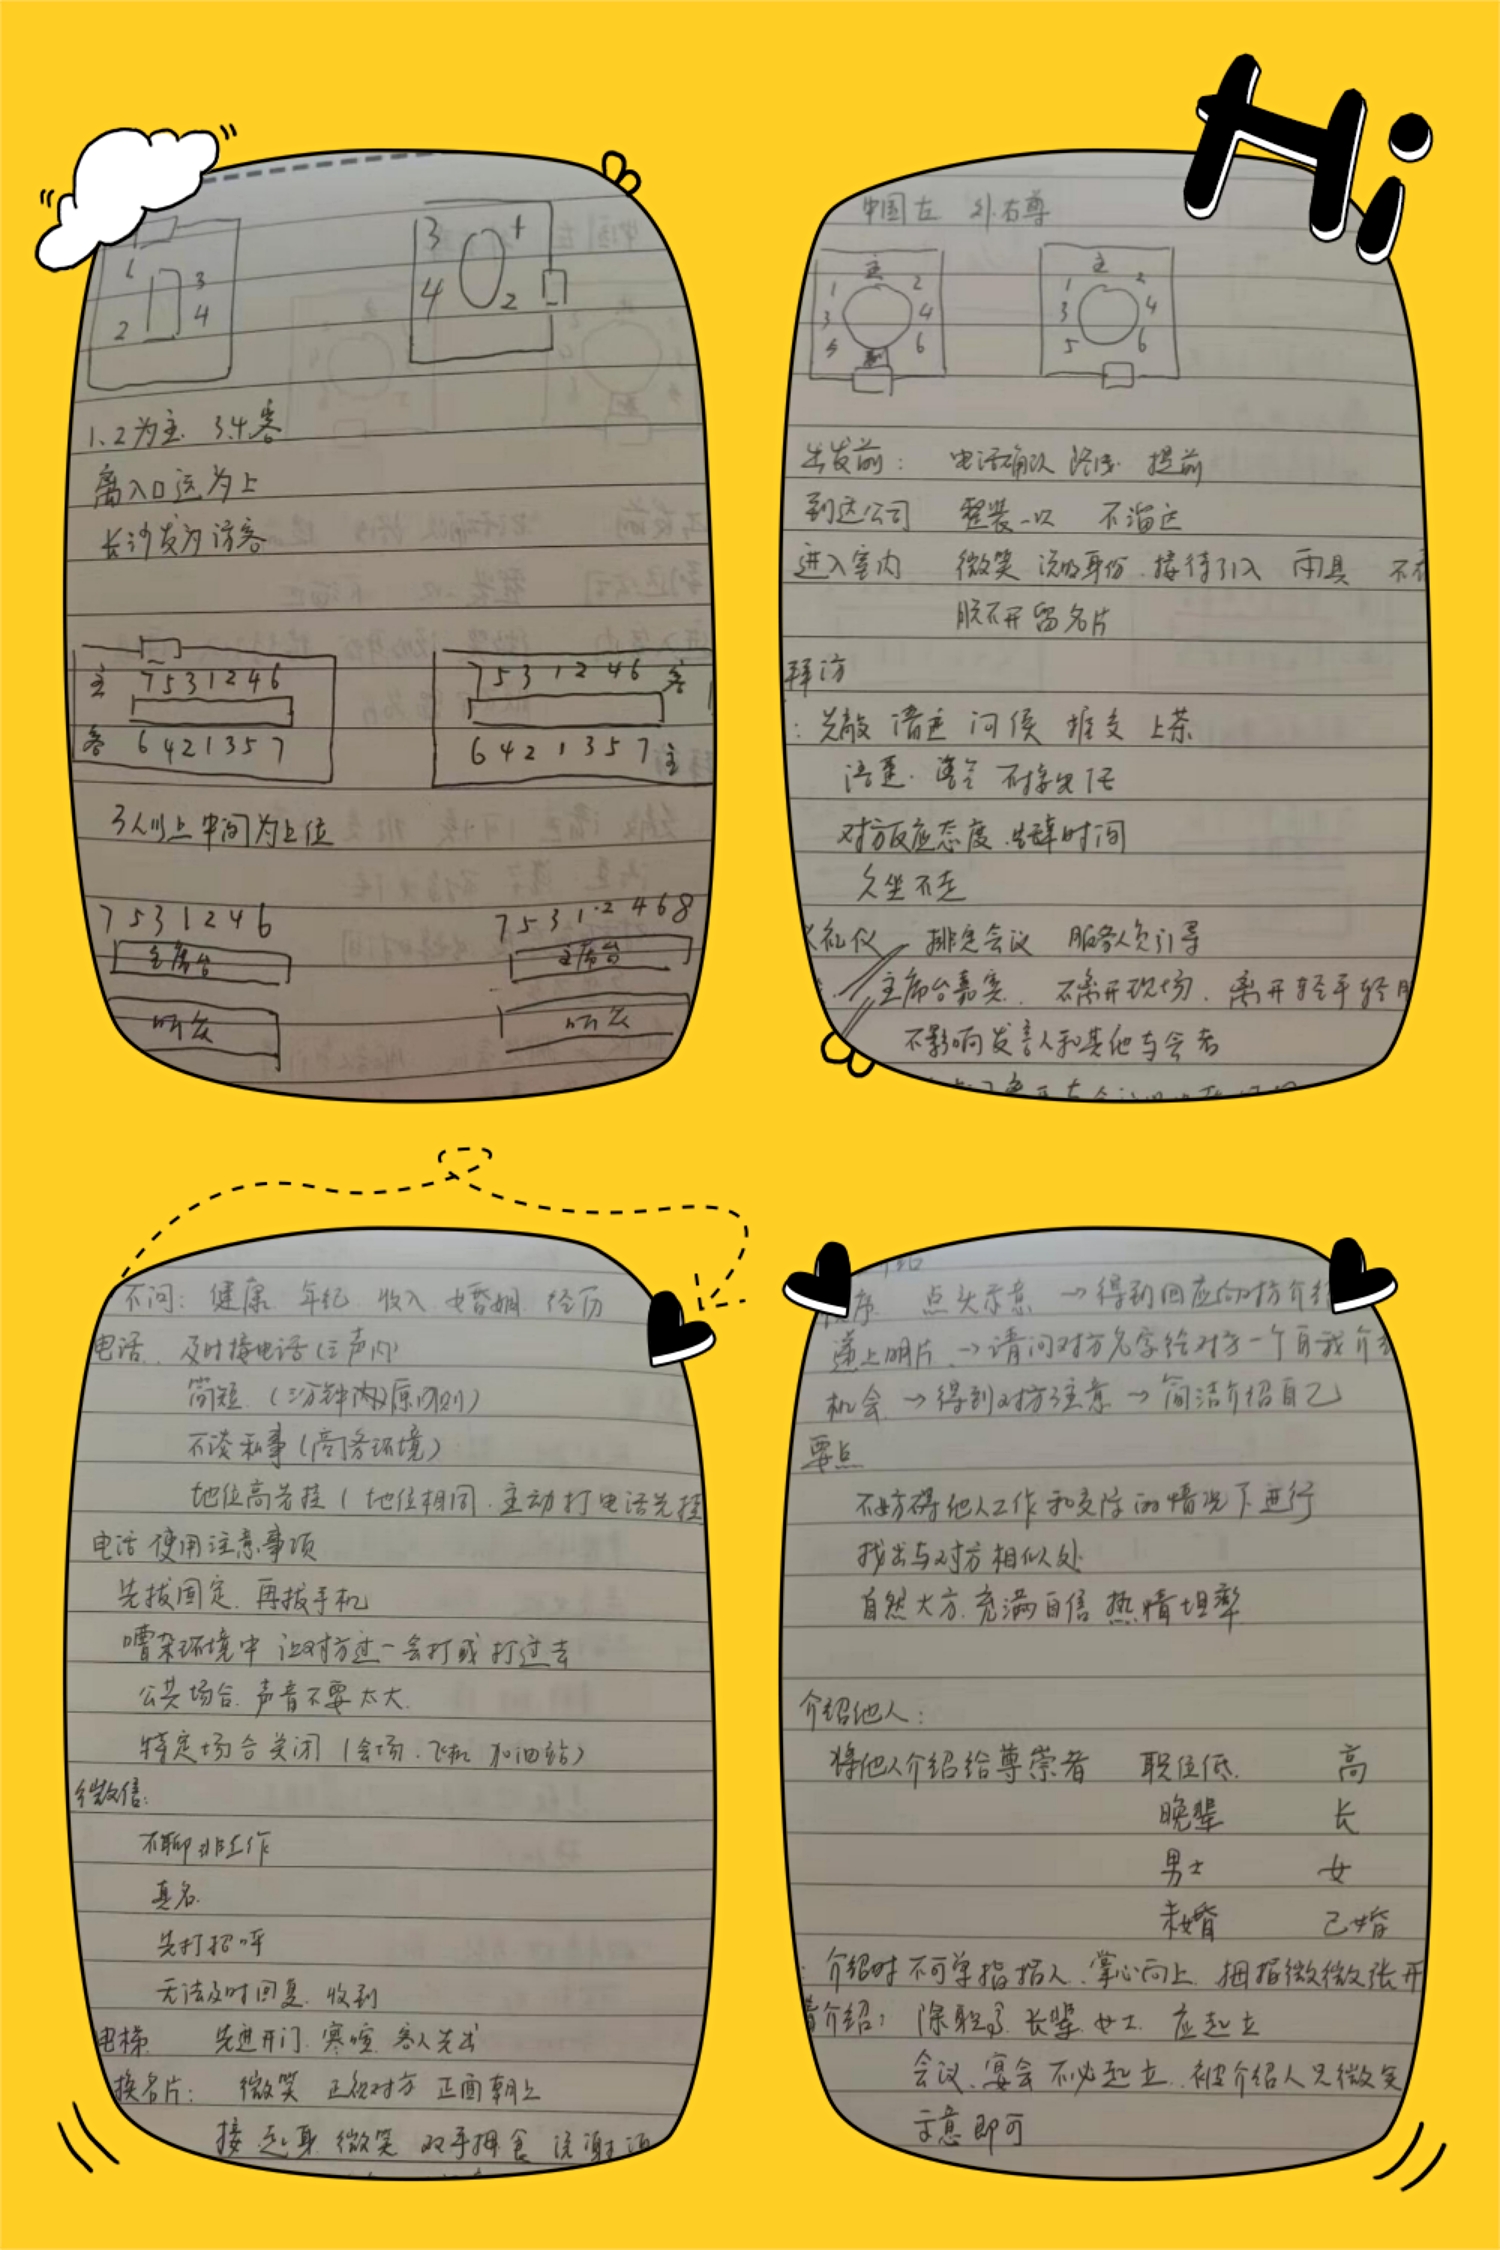 Hi
1 3
2 4
3 1
4 2
1.2为主. 3.4客
离入口远为上
长沙发为访客
主 7 5 3 1 2 4 6
客 6 4 2 1 3 5 7
7 5 3 1 2 4 6 客
6 4 2 1 3 5 7 主
3人以上中间为上位
7 5 3 1 2 4 6
主席台
听众
7 5 3 1 2 4 6 8
主席台
听众
中国左 外右尊
主
1 2
3 4
5 6
主
1 2
3 4
5 6
出发前: 电话确认 路线 提前
到达公司 整装 不溜达
进入室内 微笑 说明身份. 接待引入 雨具 不
脱不开留名片
拜访
: 先敲 请进 问候 上茶
对方反应态度. 告辞时间
久坐不走
礼仪 排定会议 服务人员引导
主席台嘉宾. 不离开现场. 离开轻手轻
不影响发言人和其他与会者
不问: 健康 年纪 收入 婚姻 经历
电话. 及时接电话(三声内)
简短. (三分钟内原则)
不谈私事(商务环境)
地位高者挂( 地位相同. 主动打电话先挂
电话使用注意事项
先拔固定. 再拔手机
嘈杂环境中 让对方过一会打或打过去
公共场合. 声音不要太大.
特定场合关闭 (会场. 飞机 加油站)
微信:
不聊非工作
真名.
先打招呼
无法及时回复. 收到
电梯 先进开门. 寒暄. 客人先出
换名片: 微笑 正视对方 正面朝上
接 起身 微笑 双手拇食
序. 点头示意 →得到回应向对方介绍
递上明片. →请问对方名字给对方一个自我介
机会 →得到对方注意 →简洁介绍自己
要点
不妨碍他人工作和交际的情况下进行
找出与对方相似处
自然大方. 充满自信 热情坦率
介绍他人:
将他人介绍给尊崇者 职位低. 高
晚辈 长
男士 女
未婚 已婚
: 介绍时不可单指指人. 掌心向上. 拇指微微张开
介绍: 除职高. 长辈. 女士. 应起立
会议. 宴会不必起立. 被介绍人只微笑
示意即可